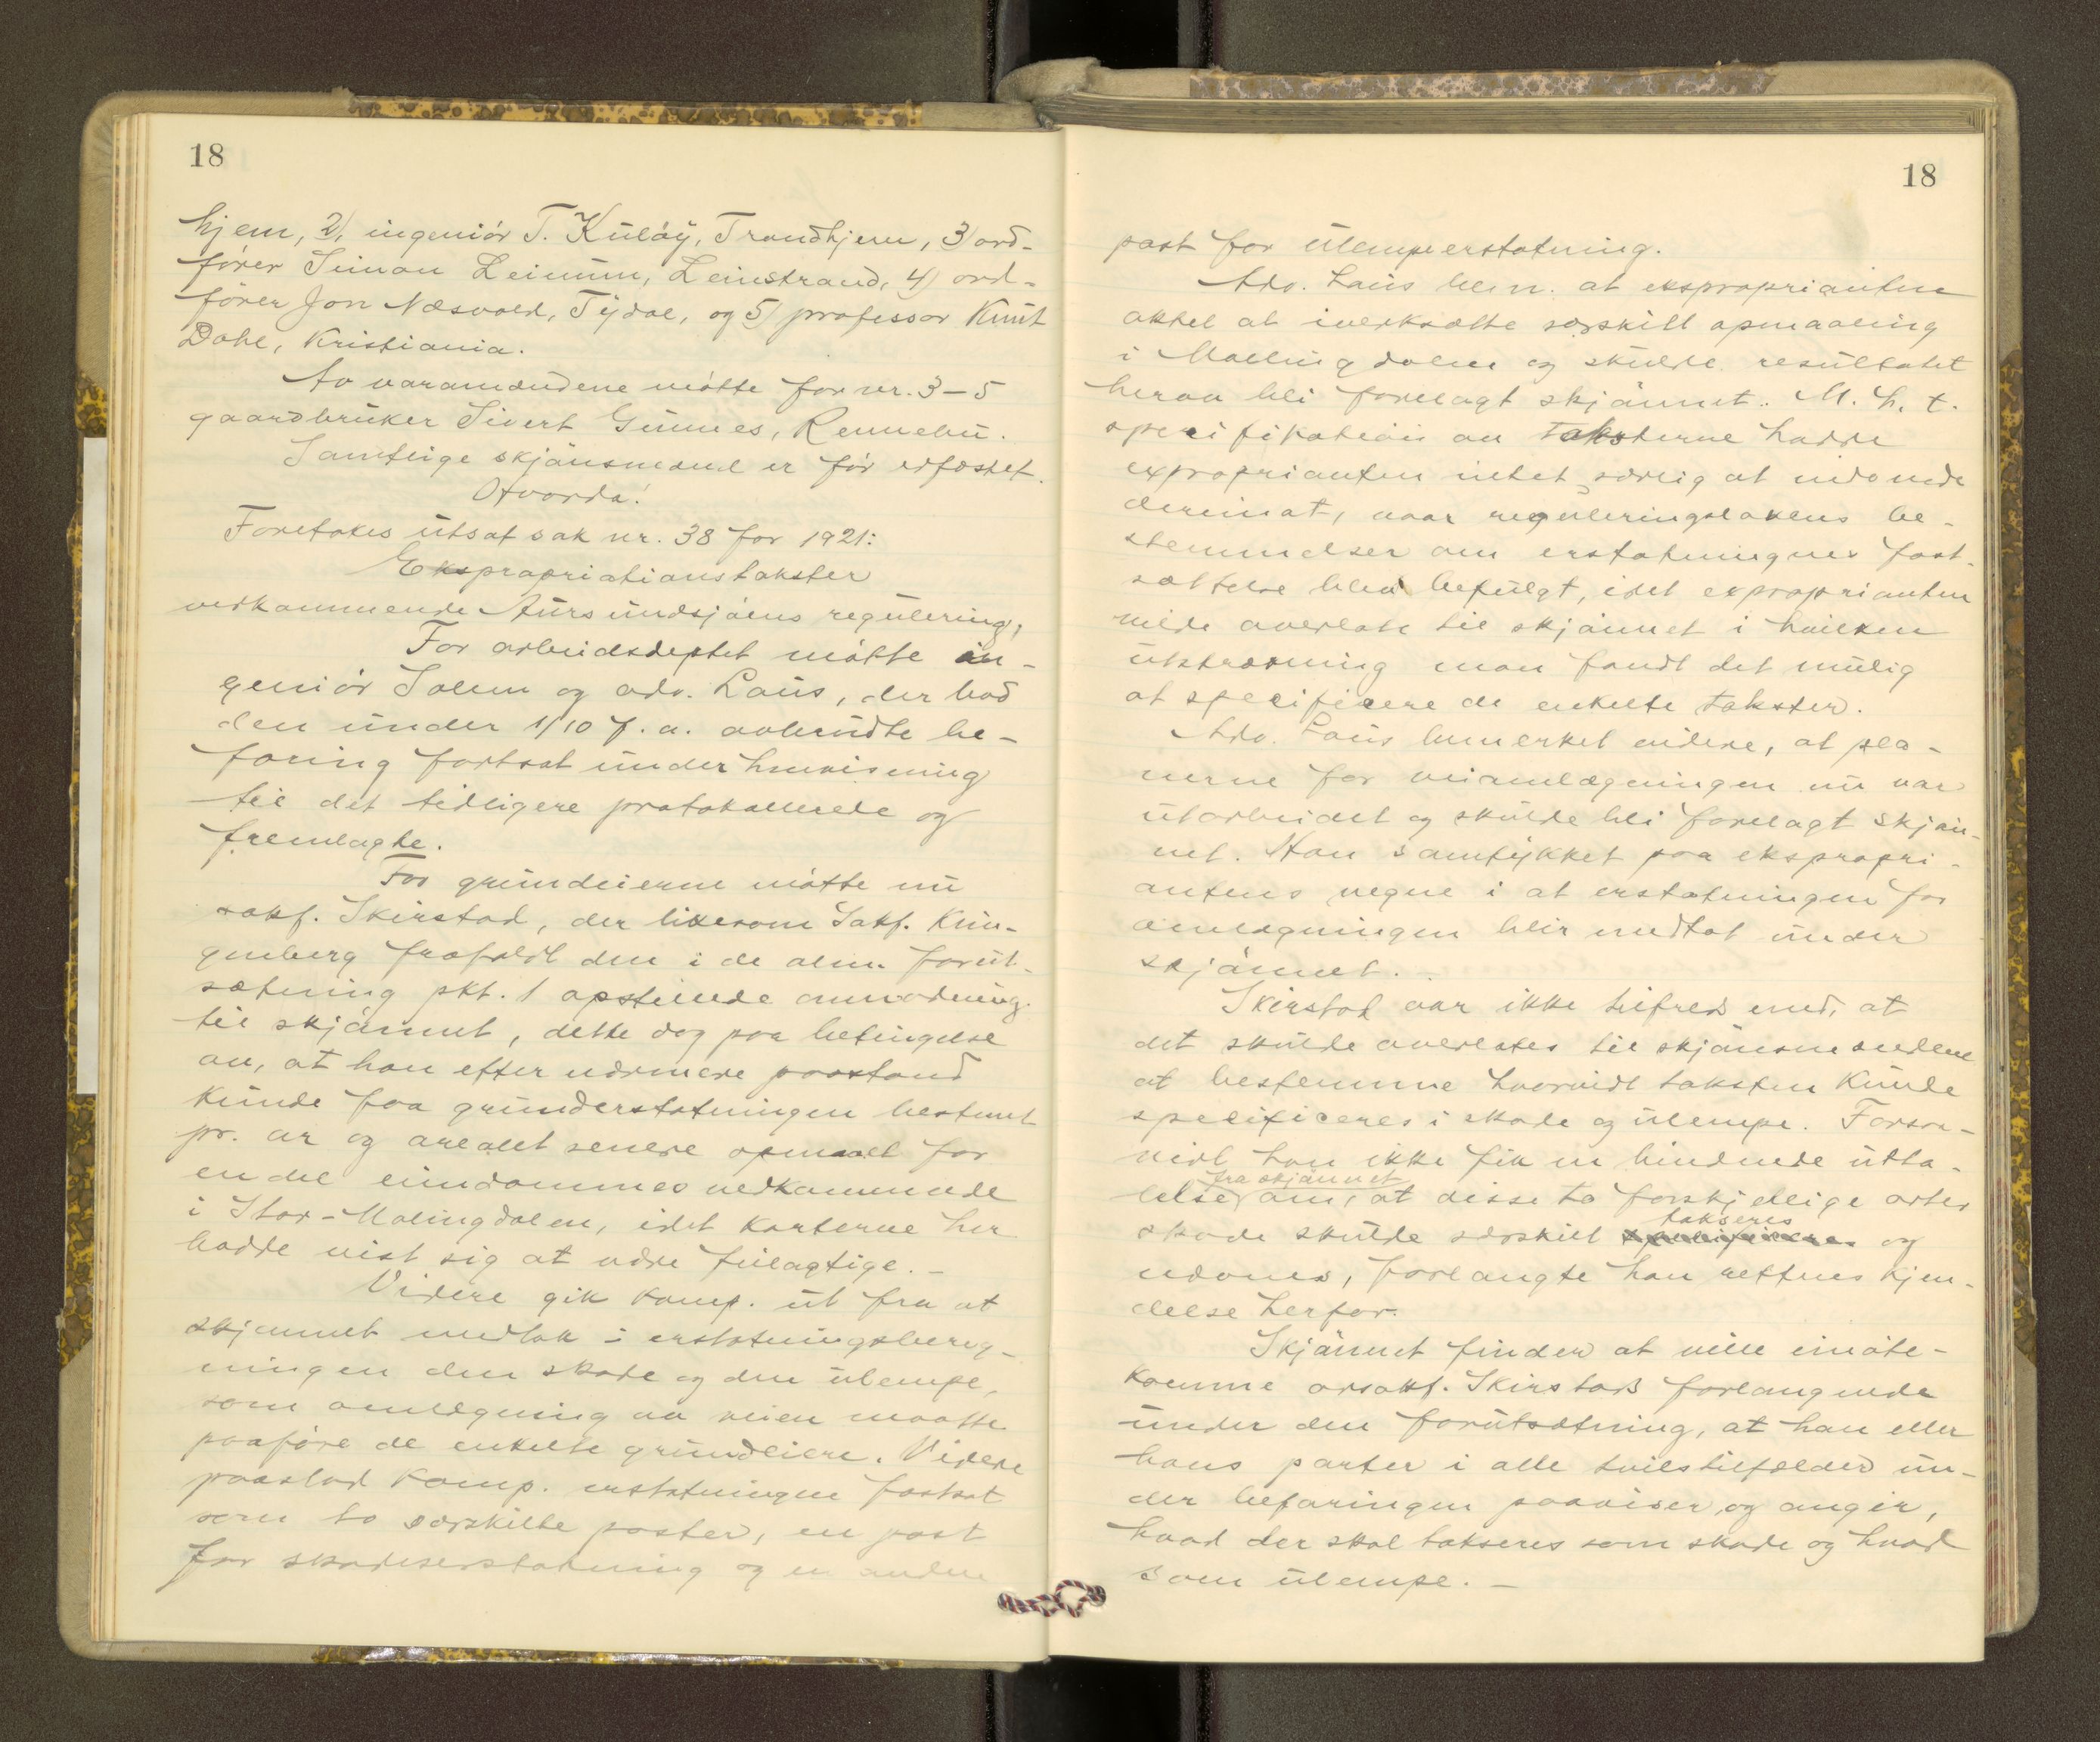 18
hjem, 2) ingeniör T. Kuløy, Trondhjem, 3) ord-
fører Simon Leinum, Leinstrand, 4) ord-
fører Jon Næsvold, Tydal, og 5) professor Knut
Dahl, Kristiania.
Av varamændene møtte for nr. 3-5
gaardbruker Sivert Gunnes, Rennebu.
Samtlige skjønsmænd er før edfæstet.
Hvorda:
Foretokes utsat sak nr. 38 for 1921:
Ekspropriationstakster
vedkommende Aursundsjøens regulering,
For arbeidsdeptet møtte in-
geniør Solem og adv. Lous, der bad
den under 1/10 f. a. avbrudte be-
faring fortsat under henvisning
til det tidligere protokollerede og
fremlagte.
For grundeierne møtte nu
sakf. Skirstad, der likesom Sakf. Klin-
genberg frafaldt den i de alm. forut-
sætning pkt. 1 opstillede anmodning
til skjønnet, dette dog paa betingelse
av, at han efter nærmere paastand
kunde faa grunderstatningen bestemt
pr. ar og arealet senere opmaalt for
endel eiendommes vedkommende
i Stor-Malingdalen, idet karterne her
hadde vist sig at være feilagtige. -
Videre gik komp. ut fra at
skjønnet medtok i erstatningsbereg-
ningen den skade og den ulempe,
som omlægning av veien maatte
paaføre de enkelte grundeiere. Videre
paastod komp. erstatningen fastsat
som to særskilte poster, en post
for skadeserstatning og en anden
18
post for ulempeerstatning.
Adv. Lous bem. at eksproprianten
aktet at iverksætte særskilt opmaaling
i Malingdalen og skulde resultatet
herav bli forelagt skjønnet. M. h. t.
specifikation av taksterne hadde
exproprianten intet særlig at indvende
derimot, naar reguleringslovens be-
stemmelser om erstatningens fast-
sættelse blev befulgt, idet exproprianten
vilde overlate til skjønnet i hvilken
utstrækning man fandt det mulig
at specificere de enkelte takster.
Adv. Lous bemerket videre, at pla-
nerne for veiomlægningen nu var
utarbeidet og skulde bli forelagt skjøn-
net. Han samtykket paa ekspropri-
antens vegne i at erstatningen for
omlægningen blir medtat under
skjønnet.
Skirstad var ikke tilfreds med, at
det skulde overlates til skjønsmændene
at bestemme hvorvidt taksten kunde
specificeres i skade og ulempe. Forsaa-
vidt han ikke fik en bindende utta-
fra skjønnet
lelse om, at disse to forskjellige arter
takseres
skade skulde særskilt og
nævnes, forlangte han rettens kjen-
delse herfor.
Skjønnet finder at ville imøte-
komme orsakf. Skirstads forlangende
under den forutsætning, at han eller
hans parter i alle tvilstilfælder un-
der befaringen paaviser og angir,
hvad der skal takseres som skade og hvad
som ulempe. -